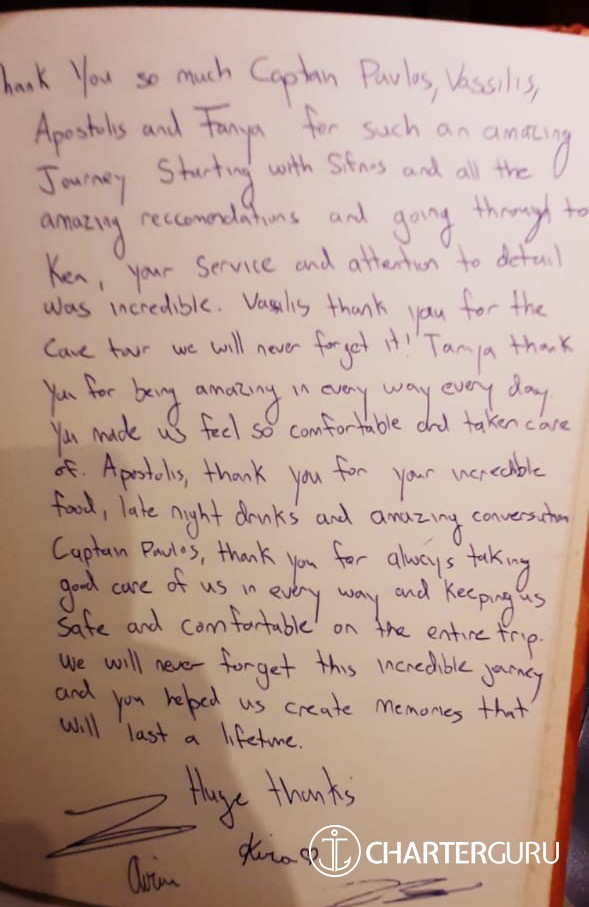 hank You so much Captan Pavlos, Vassilis,
Apostolis and Tanya for such an amazing
Journey Starting with Sifnos and all the
amazing reccomendations and going through to
Kea, your Service and attention to detail
was incredible. Vasilis thank you for the
Cave tour we will never forget it! Tanya thank
You for being amazing in every way every day.
You made us feel so comfortable and taken care
of. Apostolis, thank you for your incredible
food, late night drinks and amazing conversation
Captain Pavlos, thank you for always taking
good care of us in every way and Keeping us
Safe and comfortable on the entire trip.
We will never forget this incredible journey
and you helped us create memories that
will last a lifetime.
Huge thanks
Kira
CHARTERGURU